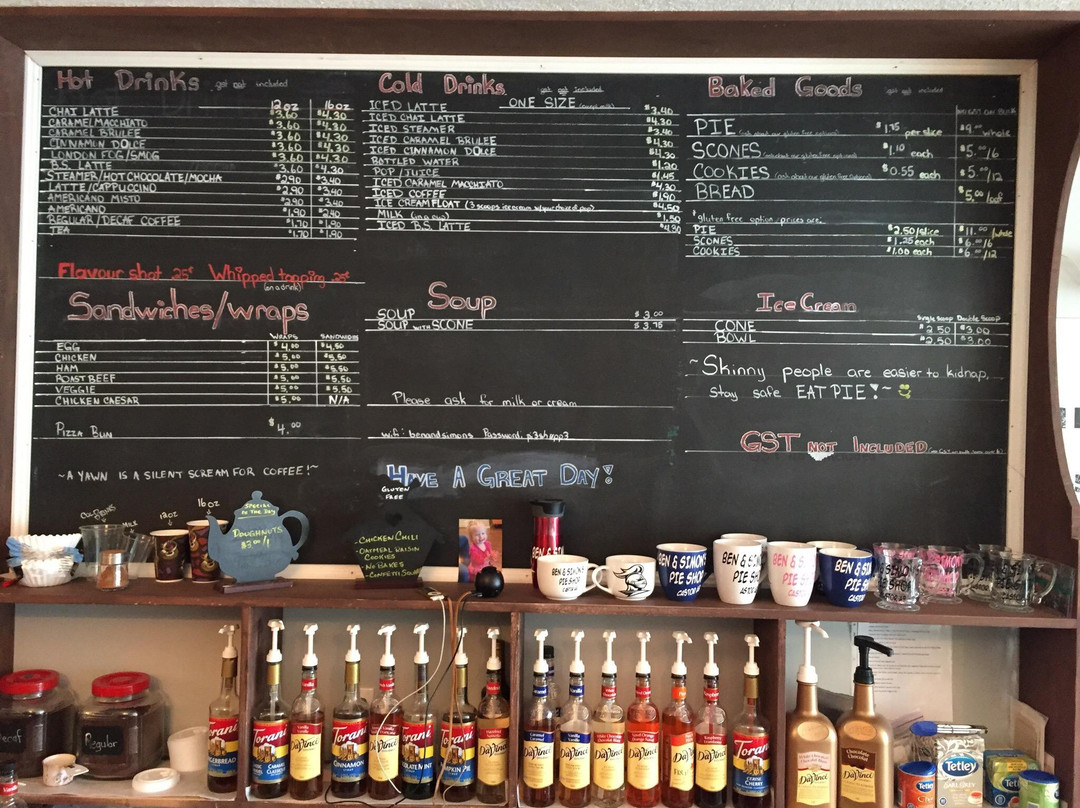 Hot Drinks gst not included
12oz 16oz
CHAI LATTE $3.60 $4.30
CARAMEL MACCHIATO $3.60 $4.30
CARAMEL BRULEE $3.60 $4.30
CINNAMON DOLCE $3.60 $4.30
LONDON FOG/SMOG $3.60 $4.30
B.S. LATTE $3.60 $4.30
STEAMER/HOT CHOCOLATE/MOCHA $2.90 $3.40
LATTE/CAPPUCCINO $2.90 $3.40
AMERICANO MISTO $2.90 $3.40
AMERICANO $1.90 $2.40
REGULAR/DECAF COFFEE $1.70 $1.90
TEA $1.70 $1.90
Flavour shot 25¢ Whipped topping 25¢
(on a drink)
Sandwiches/wraps
WRAPS SANDWICHES
EGG $4.00 $4.50
CHICKEN $5.00 $5.50
HAM $5.00 $5.50
ROAST BEEF $5.00 $5.50
VEGGIE $5.00 $5.50
CHICKEN CAESAR $5.00 N/A
PIZZA BUN $4.00
~A YAWN IS A SILENT SCREAM FOR COFFEE!~
Cold Drinks gst not included
ONE SIZE (except milk)
ICED LATTE $3.40
ICED CHAI LATTE $4.30
ICED STEAMER $3.40
ICED CARAMEL BRULEE $4.30
ICED CINNAMON DOLCE $4.30
BOTTLED WATER $1.20
POP/JUICE $1.45
ICED CARAMEL MACCHIATO $4.30
ICED COFFEE $1.90
ICE CREAM FLOAT (3 scoops ice cream w/your choice of pop) $4.50
MILK (in a cup) $1.50
ICED B.S. LATTE $4.30
Soup
SOUP $3.00
SOUP WITH SCONE $3.75
Please ask for milk or cream
wifi: benandsimons Password: p3shopp3
HAVE A GREAT DAY!
Baked Goods gst not included
PIE (ask about our gluten free options) $1.75 per slice $9.00 whole
SCONES (ask about our gluten free options) $1.10 each $5.00/6
COOKIES (ask about our gluten free options) $0.55 each $5.00/12
BREAD $5.00/loaf
*gluten free option prices are:
PIE $2.50/slice $11.00/whole
SCONES $1.25 each $6.00/6
COOKIES $1.00 each $6.00/12
Ice Cream
Single Scoop Double Scoop
CONE $2.50 $3.00
BOWL $2.50 $3.00
~Skinny people are easier to kidnap,
stay safe EAT PIE!~
GST NOT INCLUDED
COLD DRINKS
MILK
12oz
16oz
SPECIAL
OF THE DAY
DOUGHNUTS
$3.00/1
GLUTEN
FREE
-CHICKEN CHILI
-OATMEAL RAISIN
COOKIES
-NO BAKES
-CONFETTI SQUARE
BEN & SIMON'S
PIE SHOP
BEN & SIMON'S
PIE SHOP
CASTOR
BEN & SIMON'S
PIE SHOP
BEN & SIMON'S
PIE SHOP
CASTOR
BEN & SIM
PIE S
CASTOR
Decaf
Regular
Torani
GINGERBREAD
Torani
CARAMEL
CLASSIC
DaVinci
Torani
CINNAMON
Torani
DaVinci
Torani
CHOCOLATE MINT
Torani
PUMPKIN PIE
DaVinci
DaVinci
DaVinci
DaVinci
DaVinci
DaVinci
DaVinci
Torani
CHERRY
DaVinci
DaVinci
Tetley
Tetley
EARL GREY
Tetley
Tetley